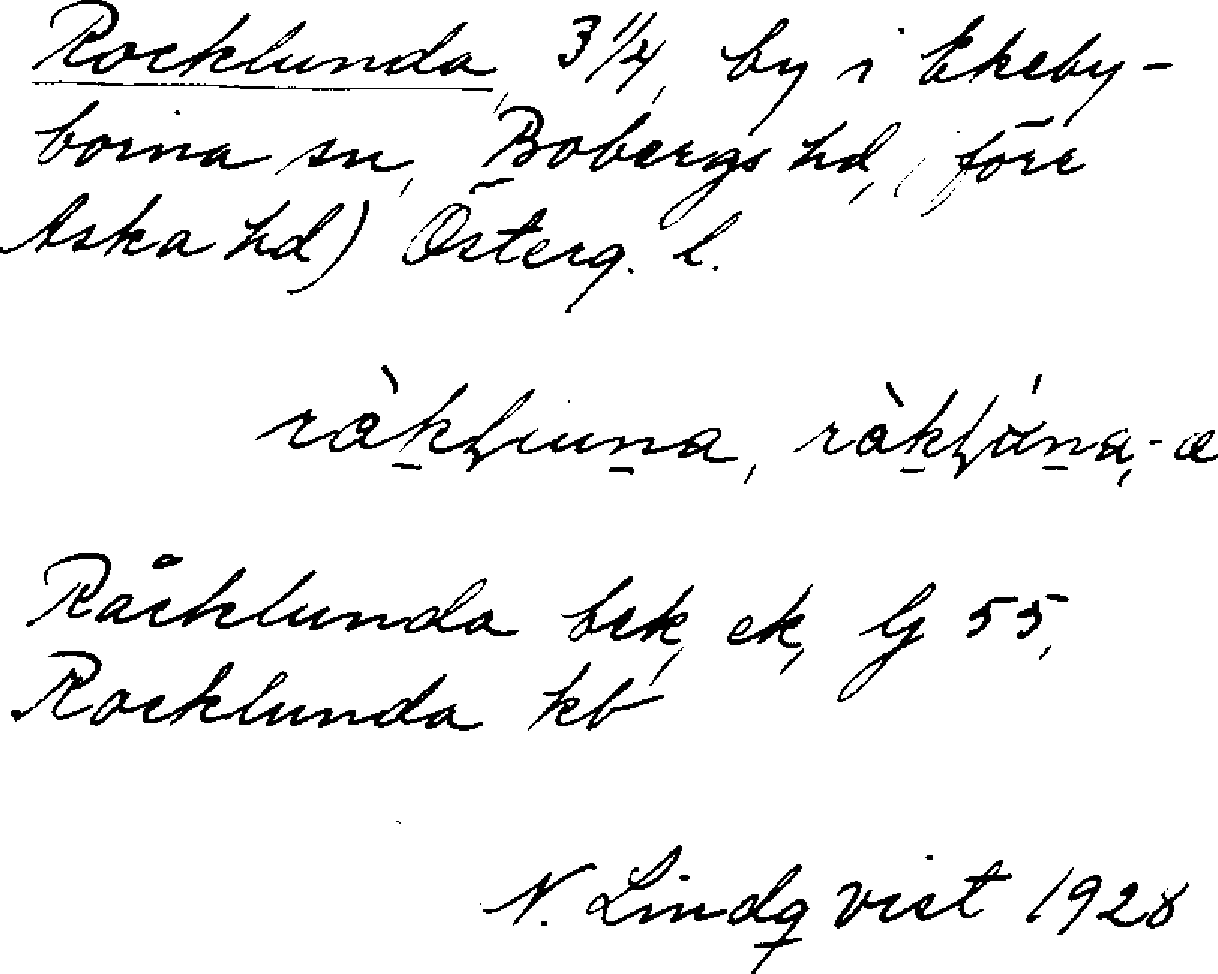 Rocklunda, 3 1/4, by i Ekeby-
borna sn, Bobergs hd, (förr
Aska hd) Österg. l.
Råcklunda bek, ek, G 55,
Rocklunda kb
N. Lindqvist 1928